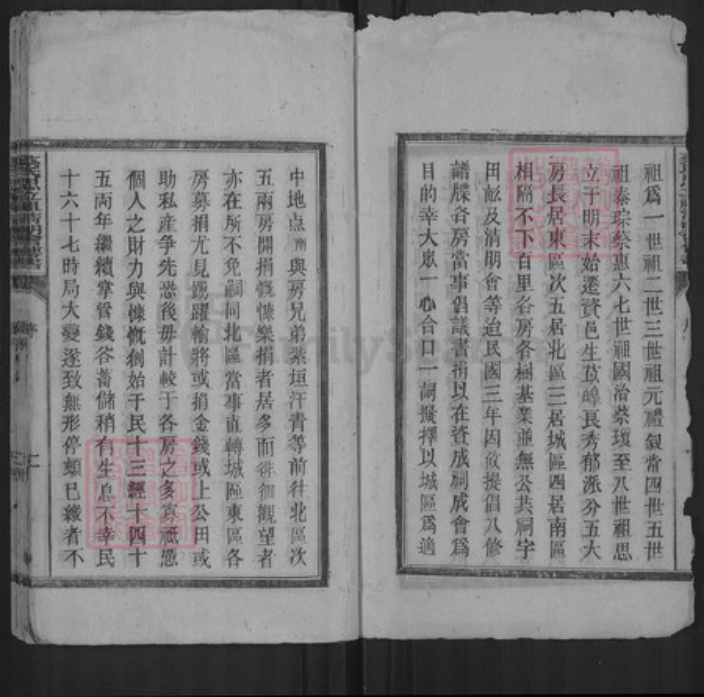 祖爲一世祖二世三世祖元禮叙常四世五世
祖泰琮蔡惠六七世祖國治蔡瓊至八世祖思
立于明末始遷資邑生苡皞長秀郁派分五大
房長居東區次五居北區三居城區四居南區
相隔不下百里各房各樹基業並無公共祠宇
田畝及清明會等迨民國三年因攸提倡八修
譜牒各房當事倡議書捐以在資成祠成會爲
目的幸大眾一心合口一詞擬擇以城區爲適
中地点爾與房兄弟紫垣汗青等前往北區次
五兩房開捐慨慷樂捐者居多而徘徊觀望者
亦在所不免嗣同北區當事直轉城區東區各
房募捐尤見踴躍輸將或捐金錢或上公田或
助私産爭先恐後毋計較于各房之多寡祇憑
個人之財力與慷慨創始于民十三經十四十
五兩年繼續掌管錢谷蓄儲稍有生息不幸民
十六十七時局大變遂致無形停頓已繳者不
FamilySearch